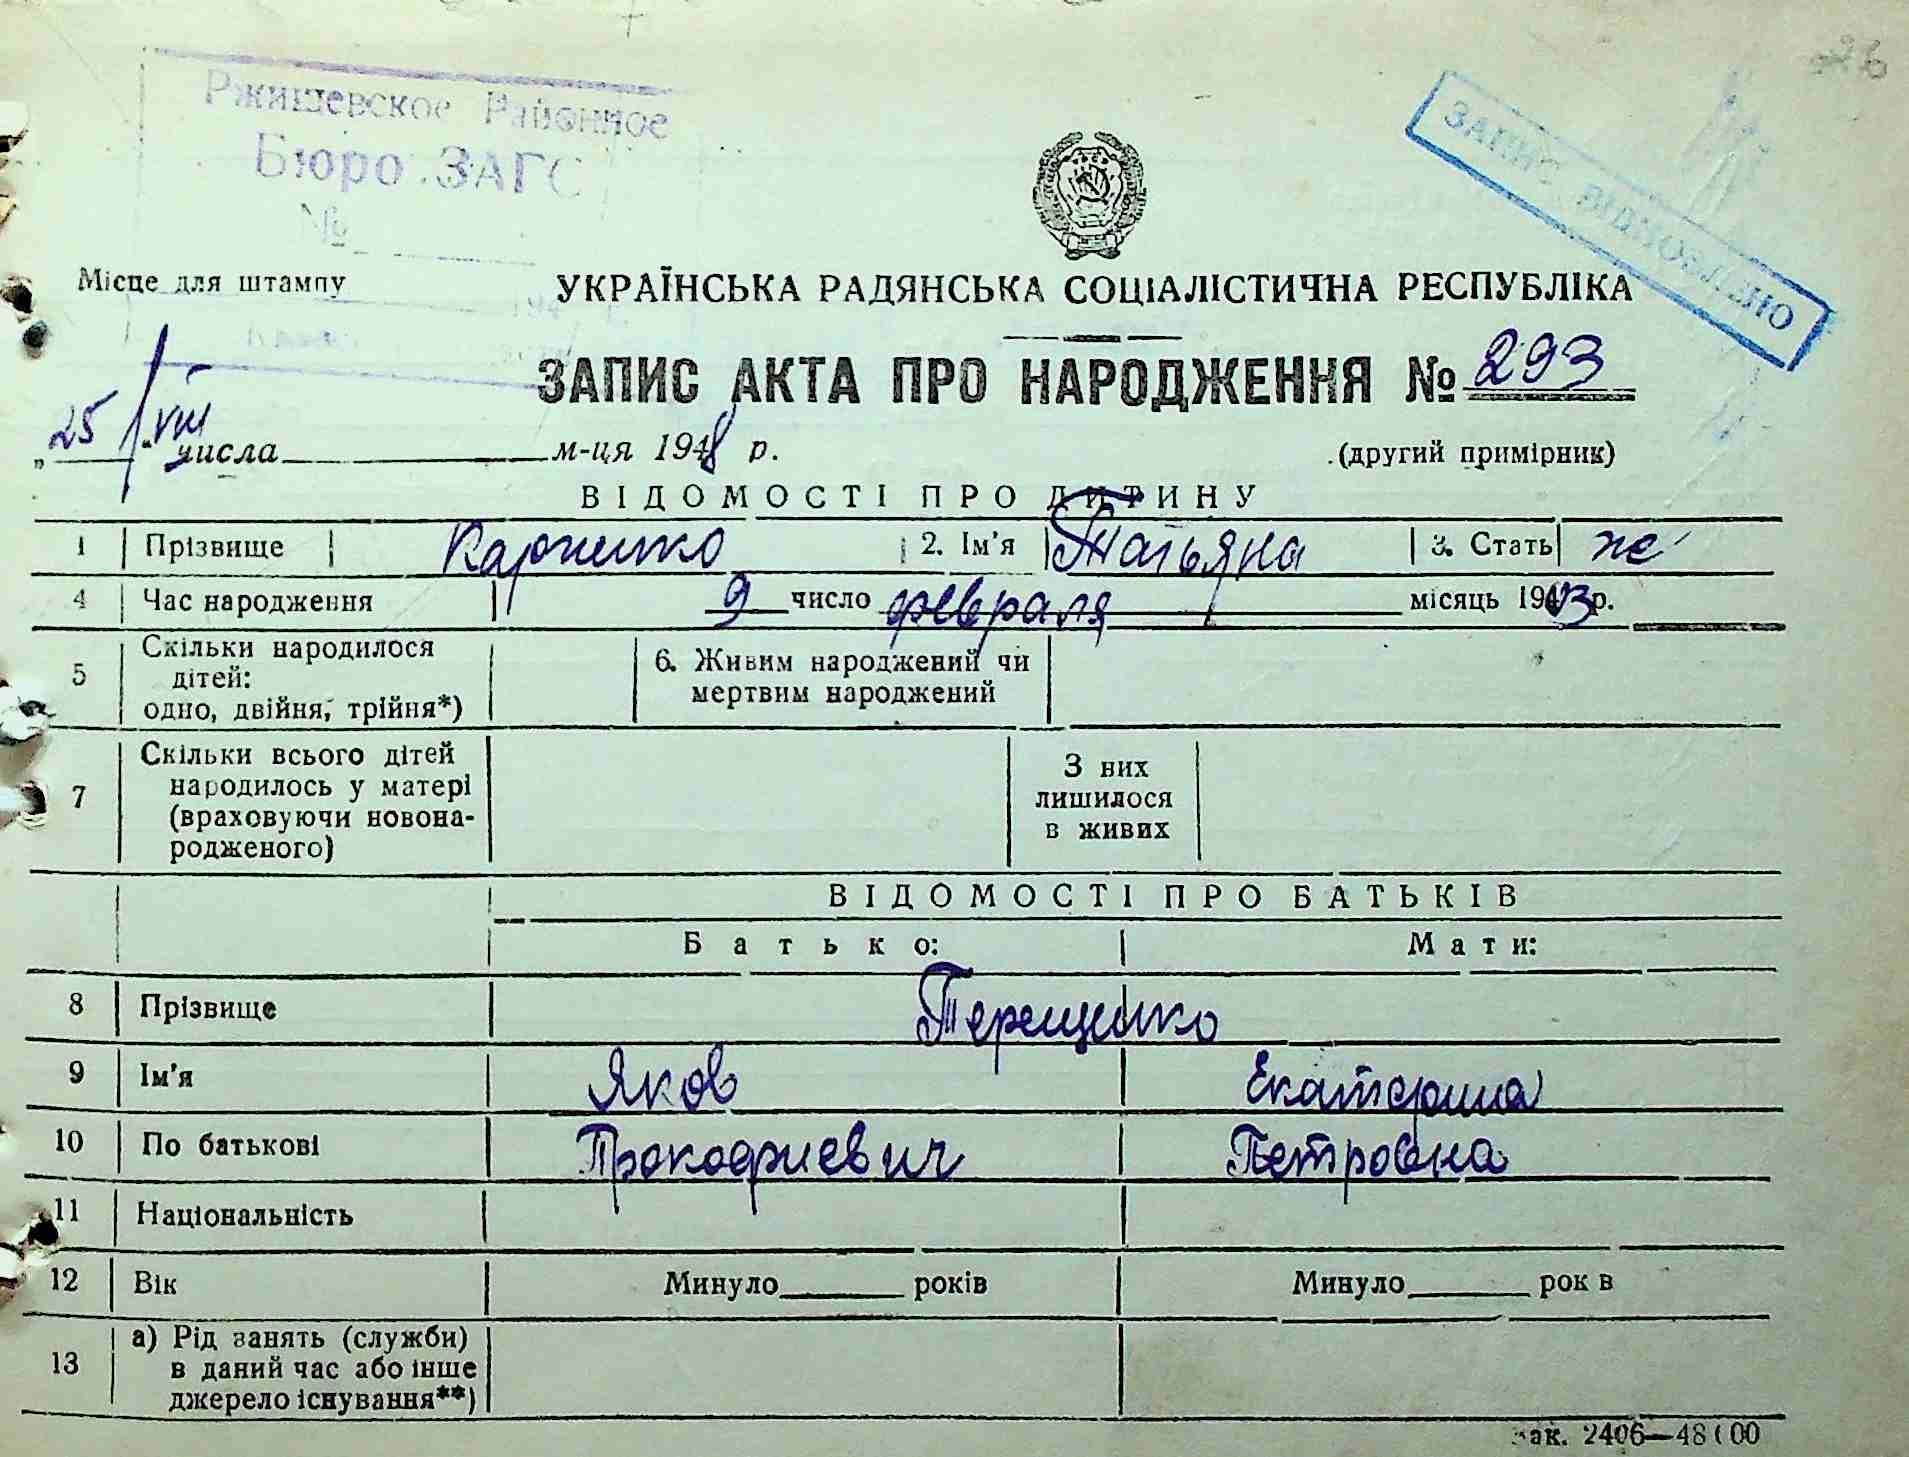 26
Ржищевское Районное
Бюро ЗАГС
№
ЗАПИС ВІДНОВЛЕНО
Місце для штампу
УКРАЇНСЬКА РАДЯНСЬКА СОЦІАЛІСТИЧНА РЕСПУБЛІКА
ЗАПИС АКТА ПРО НАРОДЖЕННЯ № 293
„25/VIII" числа м-ця 1948 р.
(другий примірник)
ВІДОМОСТІ ПРО ДИТИНУ
1 Прізвище Карпенко 2. Ім'я Татьяна 3. Стать же
4 Час народження 9 число февраля місяць 1903 р.
5 Скільки народилося дітей: одно, двійня, трійня*) 6. Живим народжений чи мертвим народжений
7 Скільки всього дітей народилось у матері (враховуючи новонародженого) З них лишилося в живих
ВІДОМОСТІ ПРО БАТЬКІВ
Батько: Мати:
8 Прізвище Терещенко
9 Ім'я Яков Екатерина
10 По батькові Прокофиевич Петровна
11 Національність
12 Вік Минуло років Минуло рок в
13 а) Рід занять (служби) в даний час або інше джерело існування**)
Зак. 2406—48